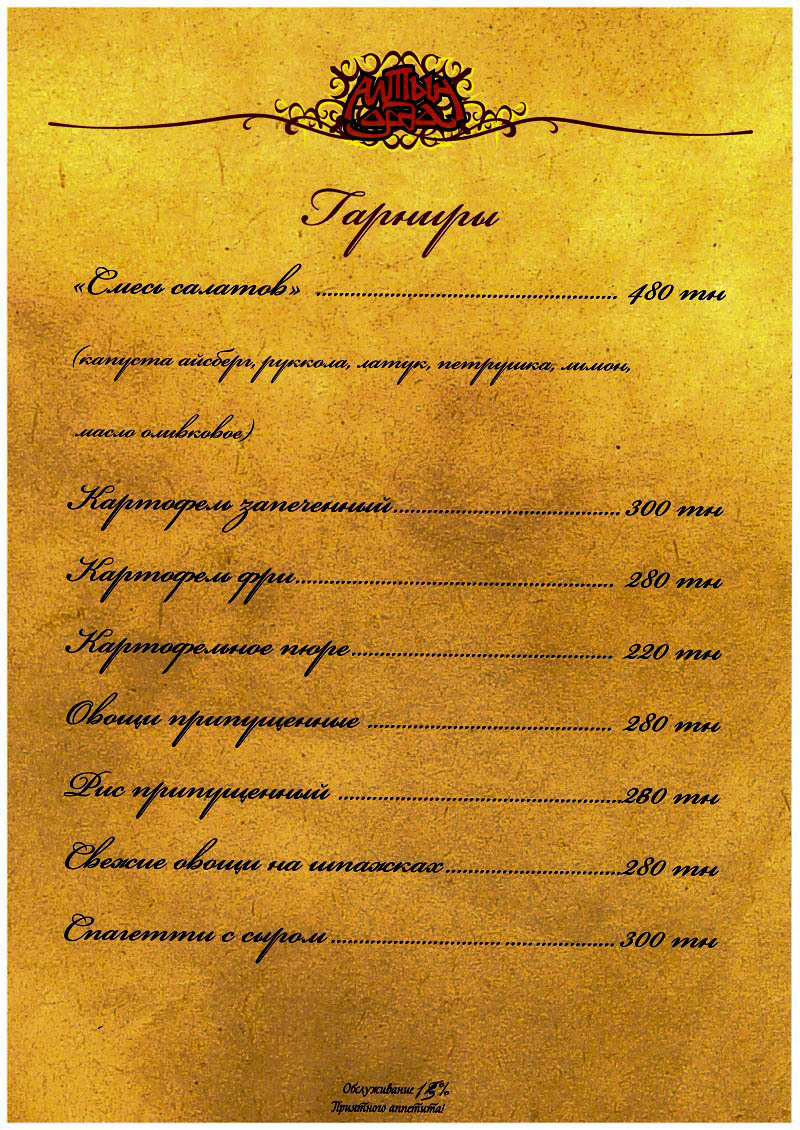 Алтын Орда
Гарниры
«Смесь салатов» ........................................................ 480 тн
(капуста айсберг, руккола, латук, петрушка, лимон,
масло оливковое)
Картофель запеченный.......................................... 300 тн
Картофель фри........................................................... 280 тн
Картофельное пюре................................................. 220 тн
Овощи припущенные ............................................. 280 тн
Рис припущенный ....................................................тн
Свежие овощи на шпажках.................................280 тн
Спагетти с сыром ................................ .....................300 тн
Обслуживание
Приятного аппетита!